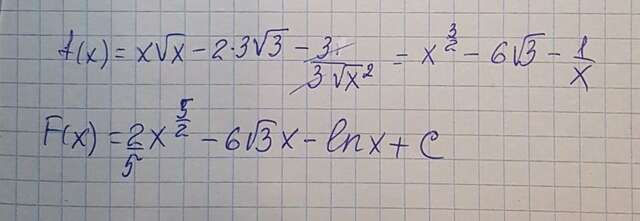 f(x) = x√x - 2·3√3 - 3/(3√x²) = x^(3/2) - 6√3 - 1/x
F(x) = 2/5 x^(5/2) - 6√3x - ln x + C